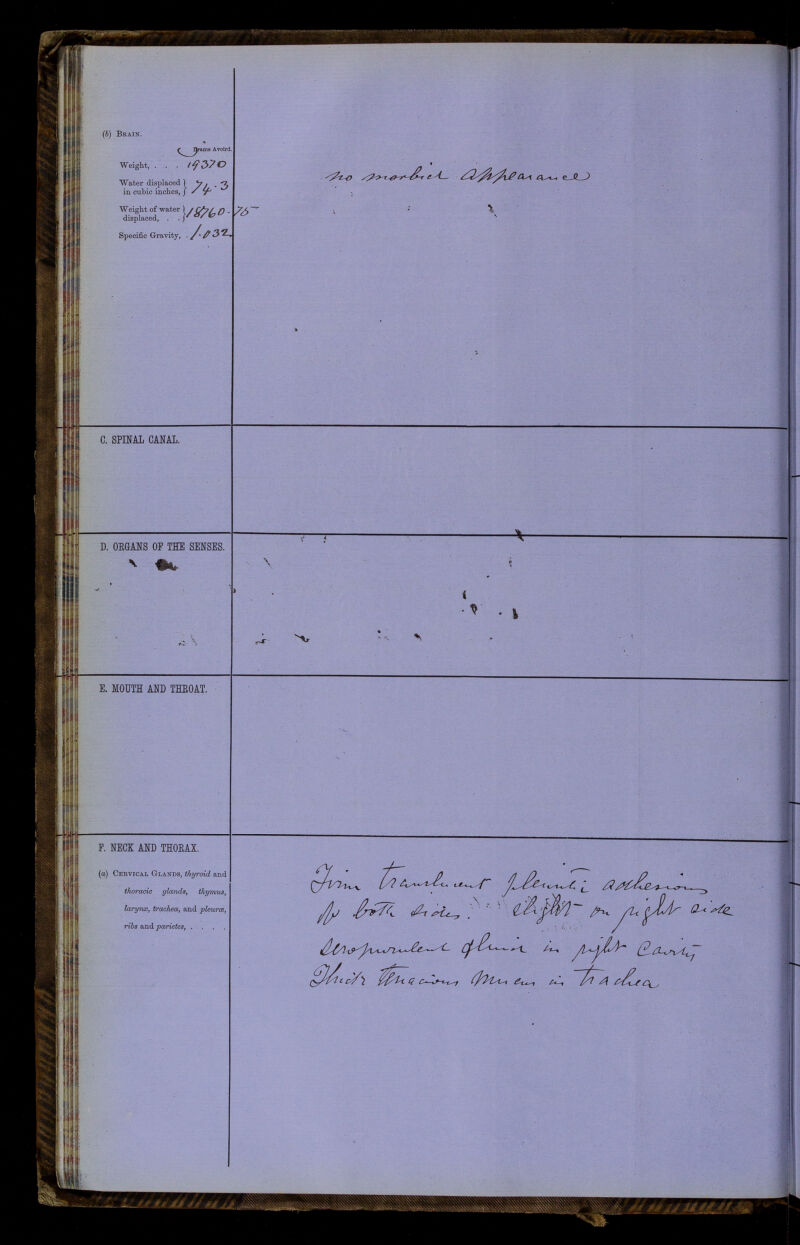 (b) BRAIN.
Grains Avoird.
Weight, . . . 19370
Water displaced in cubic inches, } 74.3
Weight of water displaced, . . } 18760.75
Specific Gravity, . 1.032
no morbid appearance
C. SPINAL CANAL.
D. ORGANS OF THE SENSES.
E. MOUTH AND THROAT.
F. NECK AND THORAX.
(a) CERVICAL GLANDS, thyroid and
thoracic glands, thymus,
larynx, trachea, and pleuræ,
ribs and parietes, . . . .
Firm translucent pleuritic adhesions
of both sides. slight on right side
Seropurulent fluid in right Cavity
Thick tenacious Mucus in trachea